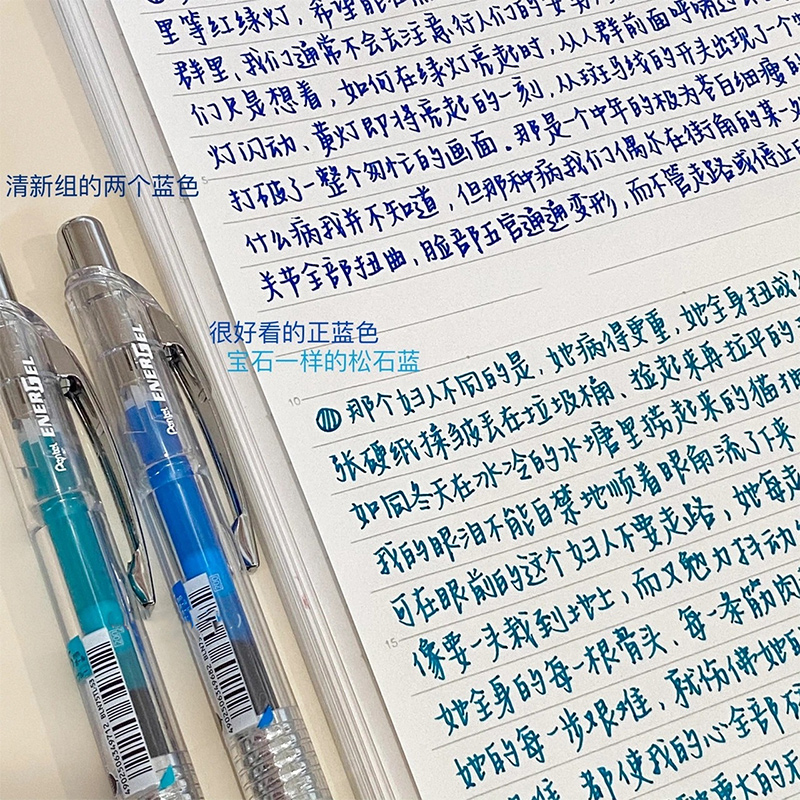 里等红绿灯,希望能在
群里,我们通常不会去注意行人们的姿势
们只是想着,如何在绿灯亮起时,从人群前面呼啸过去
灯闪动、黄灯即将亮起的一刻,从斑马线的开头出现了一个
打破了一整个匆忙的画面。那是一个中年的极为苍白细瘦的
什么病我并不知道,但那种病我们偶尔在街角的某一
关节全部扭曲,脸部五官通通变形,而不管走路或停止
5
清新组的两个蓝色
很好看的正蓝色
宝石一样的松石蓝
10
那个妇人不同的是,她病得更重,她全身扭成
张硬纸揉皱丢在垃圾桶、捡起来再拉平的
如同冬天在水冷的水塘里捞起来的猫狗
我的眼泪不能自禁地顺着眼角流了下来
可在眼前的这个妇人不要走路,她每走
像要一头栽到地上,而又勉力抖动
15
她全身的每一根骨头、每一条筋肉
她的每一步艰难,就仿佛她的
都使我的心全部
重大的
Pentel ENERGEL
Pentel ENERGEL
4902506349712 BLN75TL-S3
4902506349682